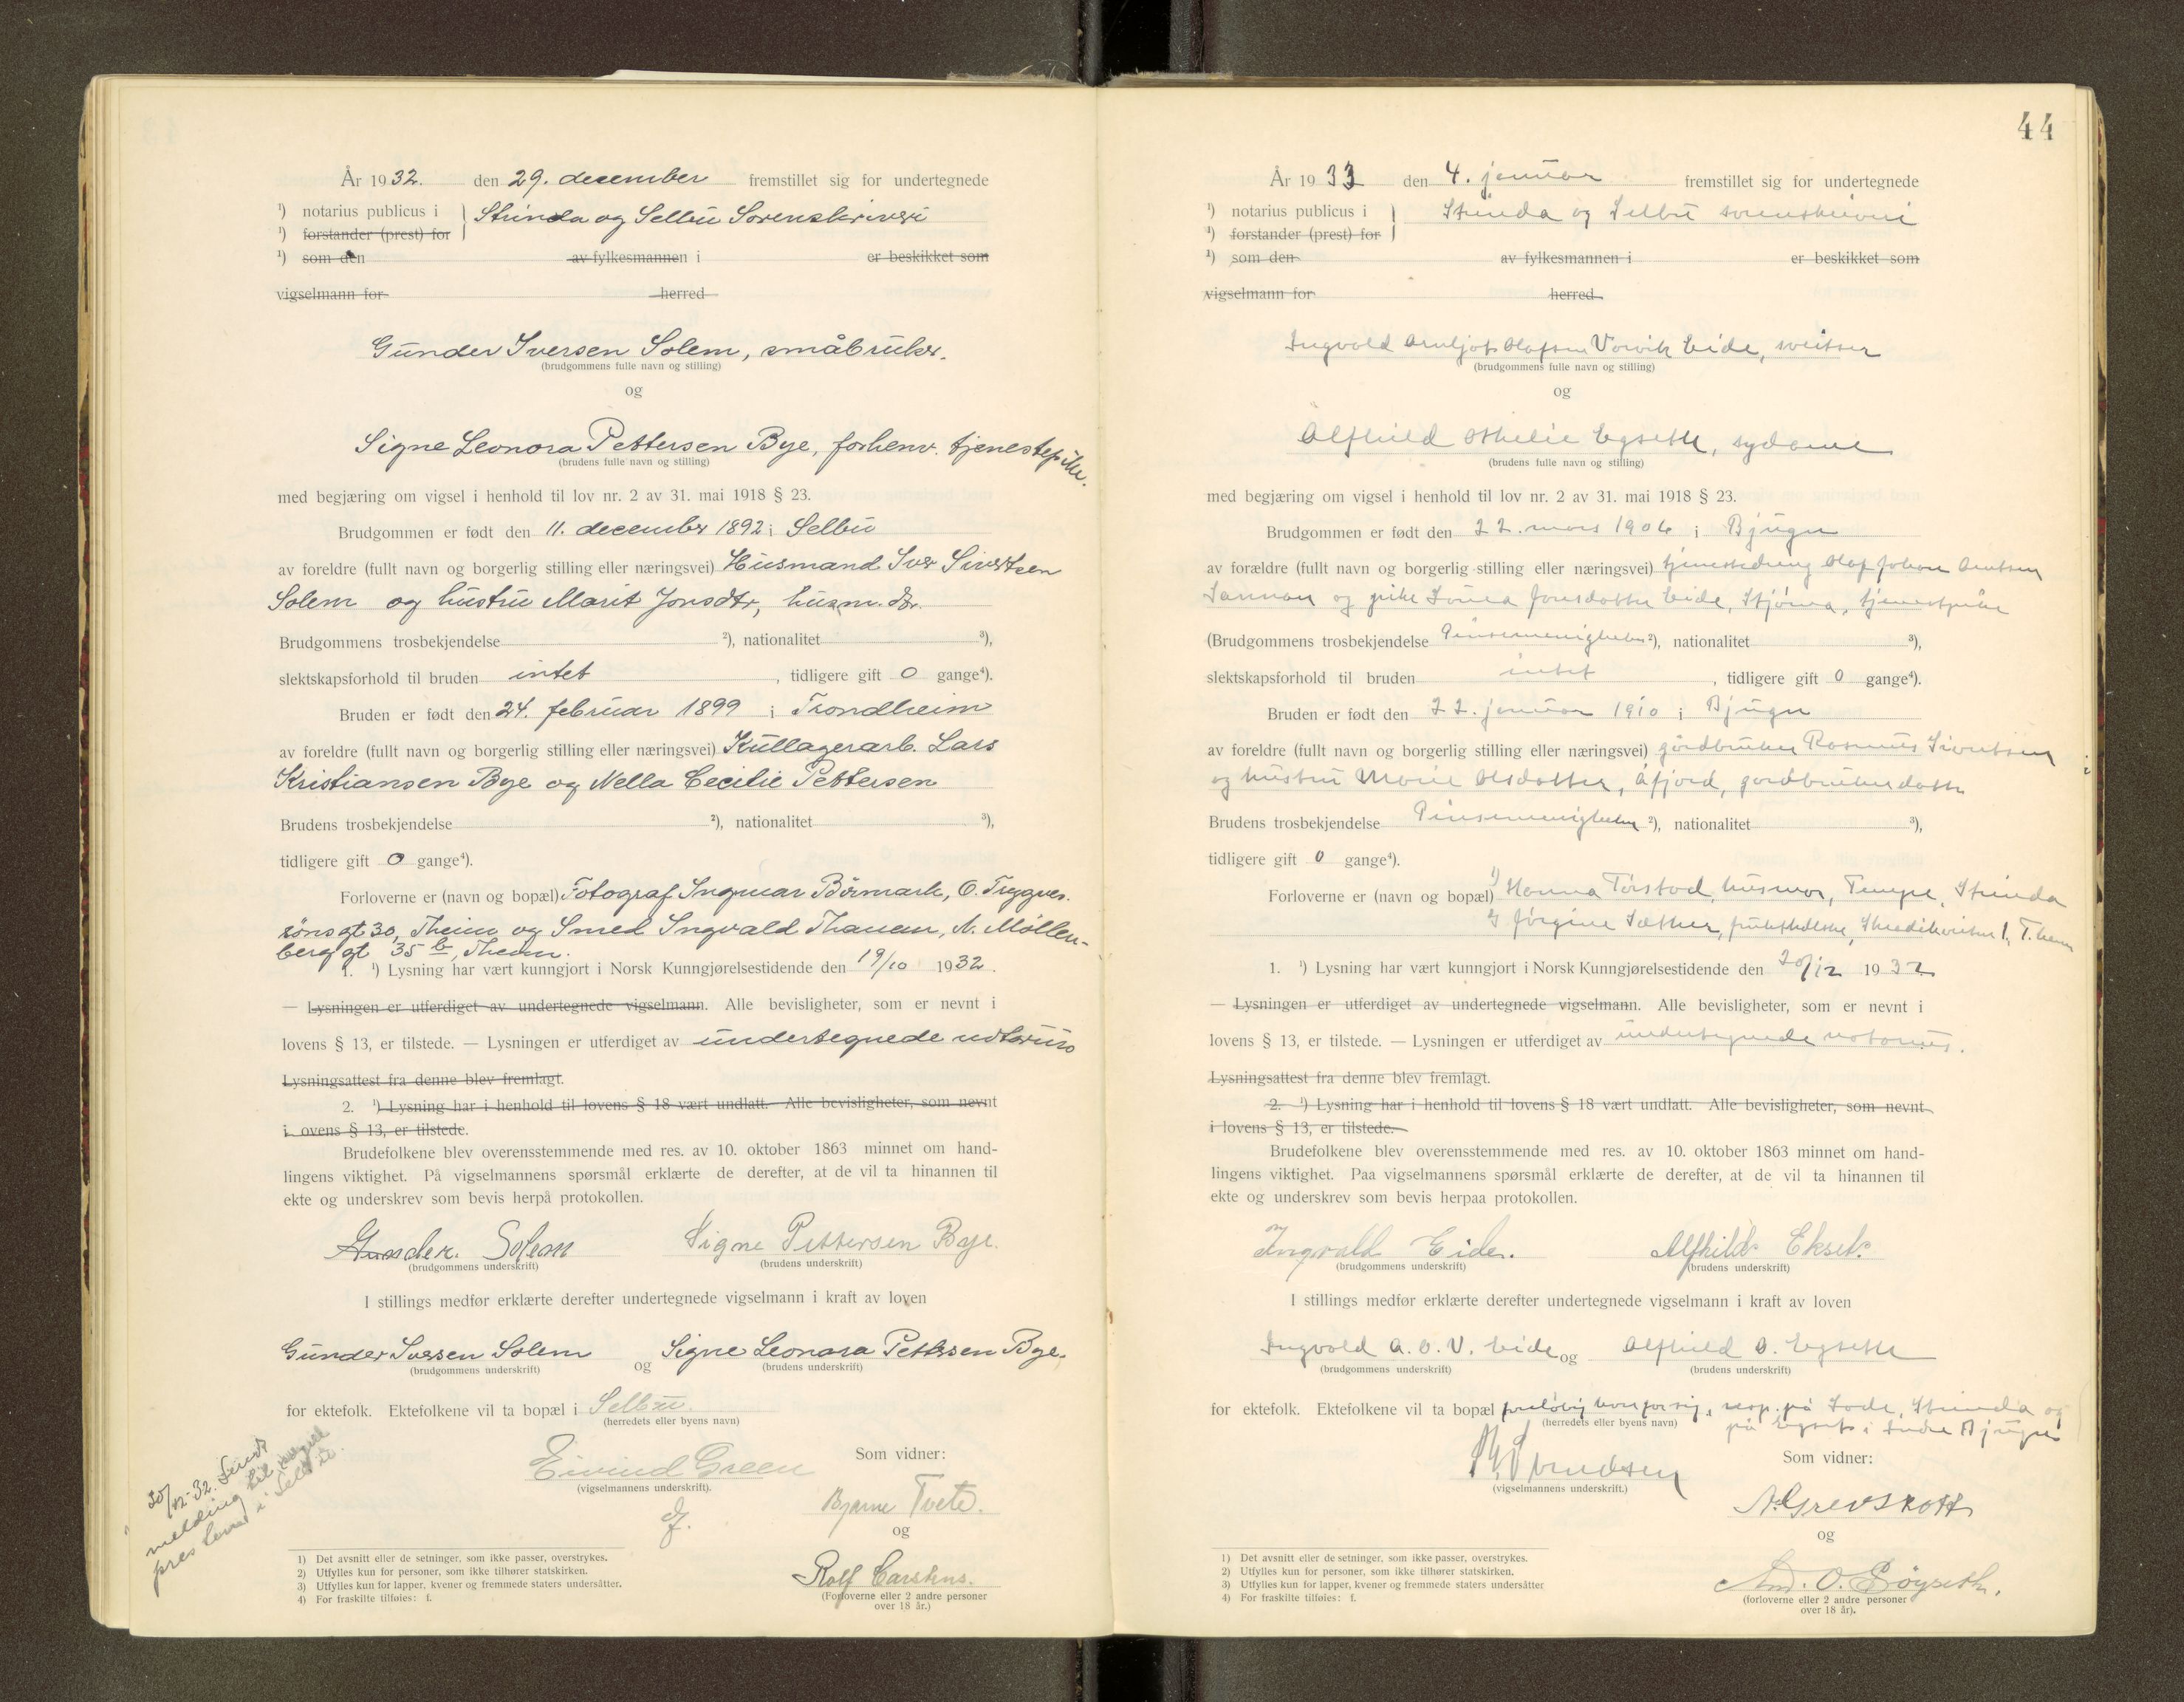 År 1932. den 29. december fremstillet sig for undertegnede
¹) notarius publicus i } Strinda og Selbu Sorenskriveri
¹) forstander (prest) for
¹) som den av fylkesmannen i er beskikket som
vigselmann for herred
Gunder Iversen Solem, småbruker.
(brudgommens fulle navn og stilling)
og
Signe Leonora Pettersen Bye, forhenv. tjenestepike.
(brudens fulle navn og stilling)
med begjæring om vigsel i henhold til lov nr. 2 av 31. mai 1918 § 23.
Brudgommen er født den 11. december 1892 i Selbu
av foreldre (fullt navn og borgerlig stilling eller næringsvei) Husmand Iver Sivertsen
Solem og hustru Marit Jonsdtr, husm. dtr.
Brudgommens trosbekjendelse ²), nationalitet ³),
slektskapsforhold til bruden intet , tidligere gift 0 gange⁴).
Bruden er født den 24. februar 1899 i Trondheim
av foreldre (fullt navn og borgerlig stilling eller næringsvei) Kullagerarb. Lars
Kristiansen Bye og Nella Cecilie Pettersen
Brudens trosbekjendelse ²), nationalitet ³),
tidligere gift 0 gange⁴).
Forloverne er (navn og bopæl) Fotograf Ingmar Börmark, O. Trygves-
sönsgt 30, Theim og Smed Ingvald Thanem, N. Möllen-
berg gt 35 b, Theim.
1. ¹) Lysning har vært kunngjort i Norsk Kunngjørelsestidende den 19/10 1932.
— Lysningen er utferdiget av undertegnede vigselmann. Alle bevisligheter, som er nevnt i
lovens § 13, er tilstede. — Lysningen er utferdiget av undertegnede notarius
Lysningsattest fra denne blev fremlagt.
2. ¹) Lysning har i henhold til lovens § 18 vært undlatt. Alle bevisligheter, som nevnt
i ovens § 13, er tilstede.
Brudefolkene blev overensstemmende med res. av 10. oktober 1863 minnet om hand-
lingens viktighet. På vigselmannens spørsmål erklærte de derefter, at de vil ta hinannen til
ekte og underskrev som bevis herpå protokollen.
Gunder. Solem Signe Pettersen Bye.
(brudgommens underskrift) (brudens underskrift)
I stillings medfør erklærte derefter undertegnede vigselmann i kraft av loven
Gunder Iversen Solem og Signe Leonora Pettersen Bye.
(brudgommens underskrift) (brudens underskrift)
for ektefolk. Ektefolkene vil ta bopæl i Selbu.
(herredets eller byens navn)
Eivind Green
(vigselmannens underskrift).
Som vidner:
Bjarne Tvete.
og
Rolf Carstens.
(Forloverne eller 2 andre personer
over 18 år.)
30/12-32. Sendt
melding til
i Selbu.
1) Det avsnitt eller de setninger, som ikke passer, overstrykes.
2) Utfylles kun for personer, som ikke tilhører statskirken.
3) Utfylles kun for lapper, kvener og fremmede staters undersåtter.
4) For fraskilte tilføies: f.
44
År 1933 den 4. januar fremstillet sig for undertegnede
¹) notarius publicus i } Strinda og Selbu sorenskriveri
¹) forstander (prest) for
¹) som den av fylkesmannen i er beskikket som
vigselmann for herred.
Ingvald Arnljot Olafsen Vorvik Eide, sveitser
(brudgommens fulle navn og stilling)
og
Alfhild Othelie Egseth, sydame
(brudens fulle navn og stilling)
med begjæring om vigsel i henhold til lov nr. 2 av 31. mai 1918 § 23.
Brudgommen er født den 22. mars 1906 i Bjugn
av forældre (fullt navn og borgerlig stilling eller næringsvei) tjenestedreng Olaf Johan Arntsen
og pike Jonsdatter Eide, Stjörna, tjenestpike
(Brudgommens trosbekjendelse Pinsemenigheten ²), nationalitet ³),
slektskapsforhold til bruden intet , tidligere gift 0 gange⁴).
Bruden er født den 22. januar 1910 i Bjugn
av foreldre (fullt navn og borgerlig stilling eller næringsvei) gårdbruker Rasmus Sivertsen
og hustru Marie Olsdatter, Åfjord, gardbrukerdatter
Brudens trosbekjendelse Pinsemenigheten ²), nationalitet ³),
tidligere gift 0 gange⁴).
Forloverne er (navn og bopæl) 1) Hanna Tørstad, husmor, Tempe, Strinda
2) Jørgine Sæther, 1, T.heim
1. ¹) Lysning har vært kunngjort i Norsk Kunngjørelsestidende den 20/12 1932
— Lysningen er utferdiget av undertegnede vigselmann. Alle bevisligheter, som er nevnt i
lovens § 13, er tilstede. — Lysningen er utferdiget av undertegnede notarius.
Lysningsattest fra denne blev fremlagt.
2. ¹) Lysning har i henhold til lovens § 18 vært undlatt. Alle bevisligheter, som nevnt
i lovens § 13, er tilstede.
Brudefolkene blev overensstemmende med res. av 10. oktober 1863 minnet om hand-
lingens viktighet. Paa vigselmannens spørsmål erklærte de derefter, at de vil ta hinannen til
ekte og underskrev som bevis herpaa protokollen.
Ingvald Eide. Alfhild Ekset.
(brudgommens underskrift) (brudens underskrift)
I stillings medfør erklærte derefter undertegnede vigselmann i kraft av loven
Ingvald A. O. V. Eide og Alfhild O. Egseth
(brudgommens underskrift) (brudens underskrift)
for ektefolk. Ektefolkene vil ta bopæl foreløbig hver for sig, resp. på Strinda og
på Egset i Indre Bjugn
(herredets eller byens navn)
(vigselmannens underskrift.)
Som vidner:
A. Grevskott
og
And. O. Böyseth.
(forloverne eller 2 andre personer
over 18 år).
1) Det avsnitt eller de setninger, som ikke passer, overstrykes.
2) Utfylles kun for personer, som ikke tilhører statskirken.
3) Utfylles kun for lapper, kvener og fremmede staters undersåtter
4) For fraskilte tilføies: f.